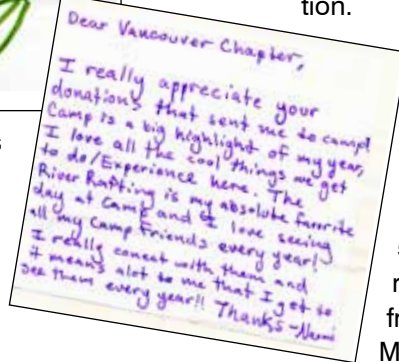 tion.
Dear Vancouver Chapter,
I really appreciate your
donations that sent me to camp!
Camp is a big highlight of my year,
I love all the cool things we get
to do/Experience here. The
River Rafting is my absolute favorite
day at camp and I love seeing
all my camp friends every year!
I really conect with them and
it means alot to me that I get to
see them every year!! Thanks -
s
r
fr
M